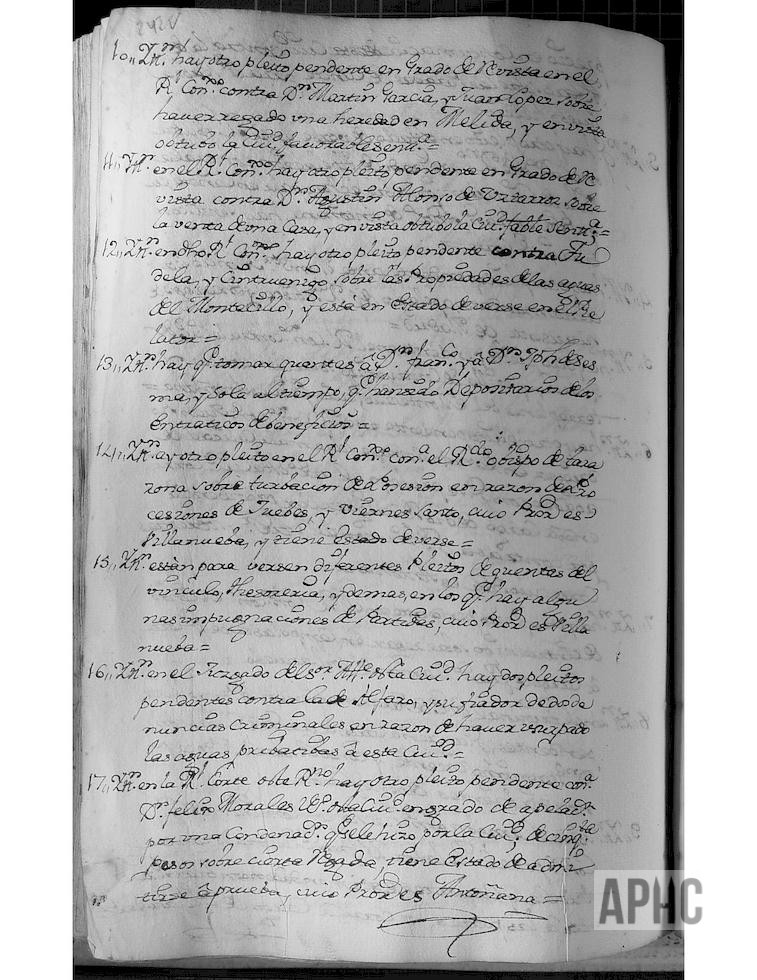 10,, Ytt.n hay otro pleito pendente en Grado de Revista en el
R.l Con.jo contra D.n Martin Garcia, y Juan Lopez sobre
haver regado una heredad en Melida, y en vista
obtubo la Ciu.d favorable senn.a =
11,, Ytt.n en el R.l Con.jo hay otro pleito pendente en Grado de Re
vista contra D.n Agustin Alonso de sobre
la venta de una Casa, y en vista obtubo la Ciu.d fable Senn.a =
12,, Ytt.n en dho R.l Con.jo hay otro pleito pendente contra Tu
dela, y Cintruenigo sobre las Propiedades de las aguas
del Montecillo, y está en Estado de verse en el Re
lator =
13,, Ytt.n hay q.e tomar quentas â D.n fran.co y â D.n Jph de Ses
ma, y Sola al tiempo, q.e han sido Depositarios de los
Entraticos de beneficios =
14,, Ytt.n ay otro pleito en el R.l Con.jo con.a el R.do obispo de tara
zona sobre turbacion de Posesion en razon de Pro
cesiones de Juebes, y Viernes Santo, cuio Pror es
Villanueba, y tiene Estado de verse =
15,, Ytt.n están para versen diferentes Pleitos de quentas del
vinculo, thesoreria, y demas, en los q.e hay algu
nas impugnaciones de Partidas, cuio Pror es Villa
nueba =
16,, Ytt.n en el Juzgado del s.or Alc.e de esta Ciu.d hay dos pleitos
pendentes contra la de Alfaro, y su fiador de dode
nuncias Criminales en razon de haver usurpado
las aguas pribatibas â esta Ciu.d =
17,, Ytt.n en la R.l Corte de este R.no hay otro pleito pendente con.a
D.n felix Morales de esta Ciu.d en grado de apelaz.n
por una Condenaz.n q.e se le hizo por la Ciu.d de cinq.ta
pesos sobre cierta Regadia, tiene Estado de admi
tirse â prueba, cuio Pror es Antoñana =
APHC